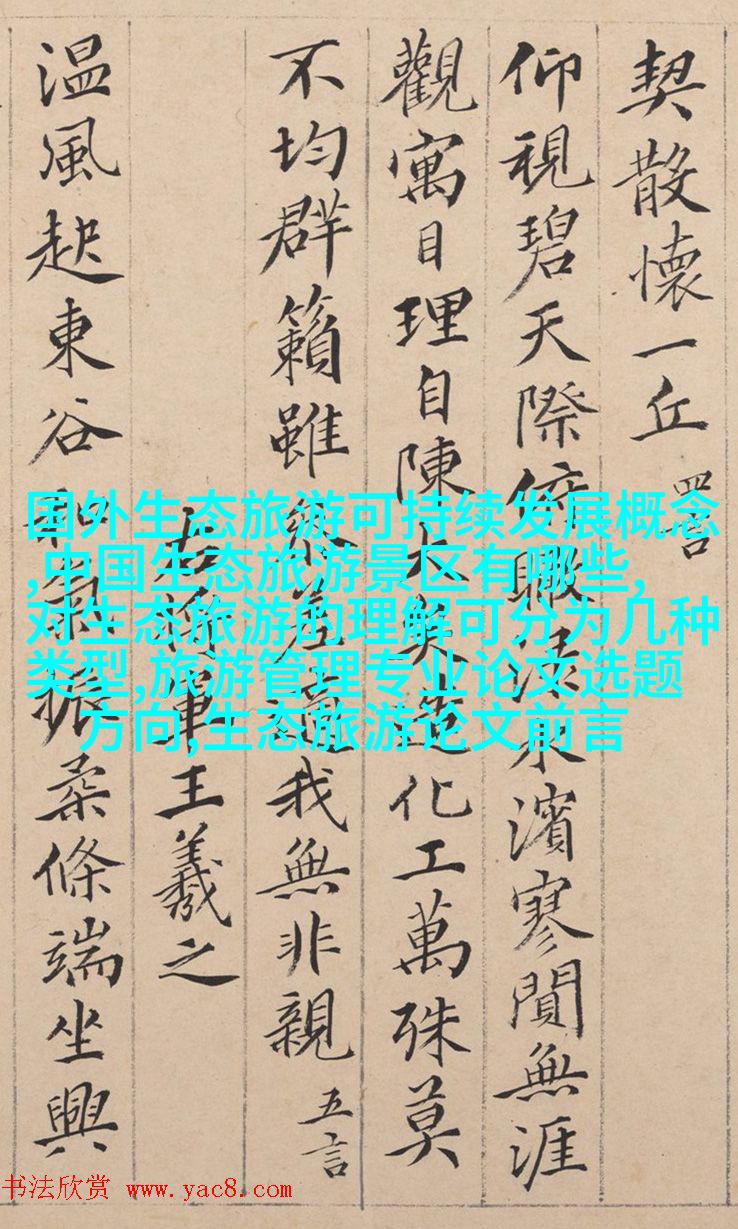 契散懷一丘 四言
仰視碧天際俯瞰淥水濱寥閴無涯
觀寓目理自陳大矣造化工萬殊莫
不均群籟雖參差適我無非親 五言
右將軍王羲之
温風起東谷和氣振柔條端坐興
国外生态旅游可持续发展概念
,中国生态旅游景区有哪些,
对生态旅游的理解可分为几种
类型,旅游管理专业论文选题
方向,生态旅游论文前言
书法欣赏 www.yac8.com